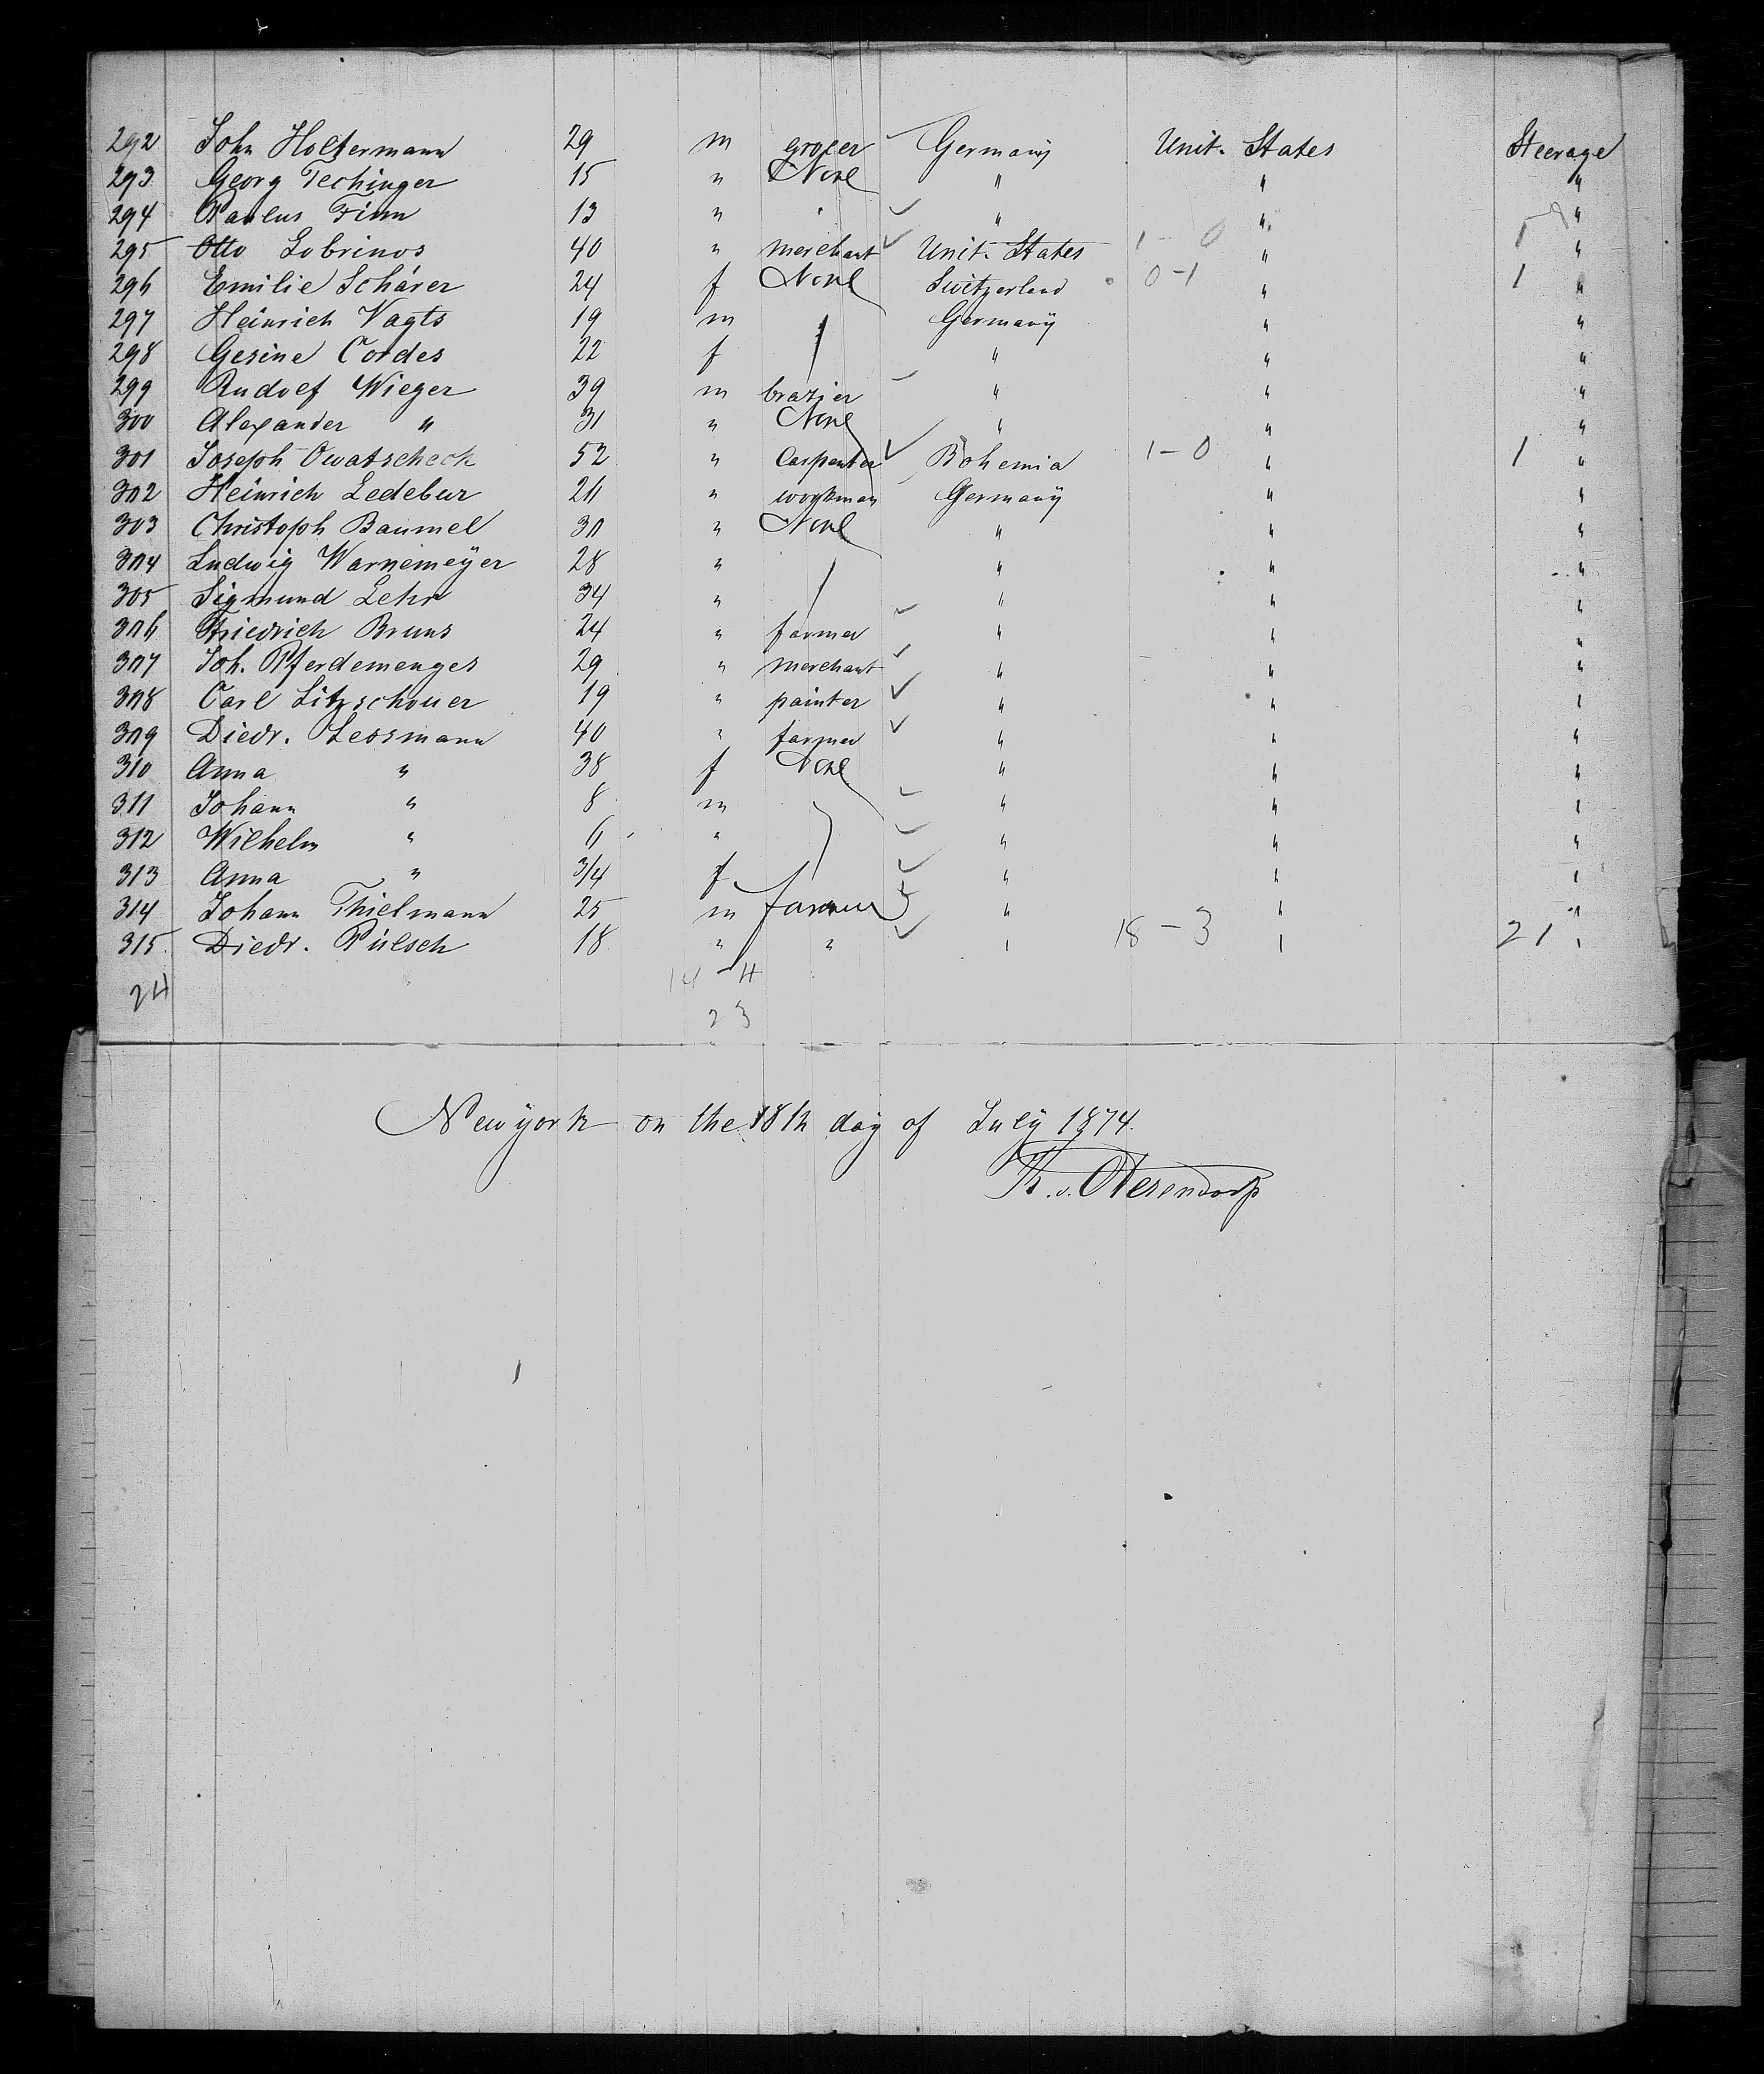 292 John Holtermann 29 m grocer Germany Unit. States Steerage
293 Georg Techinger 15 " None " " "
294 Paulus Finn 13 " " " "
295 Otto Lobrinos 40 " merchant Unit. States 1-0 " 1 "
296 Emilie Schärer 24 f None Switzerland 0-1 " 1 "
297 Heinrich Vagts 19 m Germany " "
298 Gesine Cordes 22 f " " "
299 Rudolf Wieger 39 m brazier " " "
300 Alexander " 31 " None " " "
301 Joseph Owatscheck 52 " Carpenter Bohemia 1-0 " 1 "
302 Heinrich Ledebur 26 " workman Germany " "
303 Christoph Baumel 30 " None " " "
304 Ludwig Warnemeyer 28 " " " "
305 Sigmund Lehr 34 " " " "
306 Friedrich Bruns 24 " farmer " " "
307 Joh. Pferdemenges 29 " merchant " " "
308 Carl Litzschouer 19 " painter " " "
309 Diedr. Lessmann 40 " farmer " " "
310 Anna " 38 f None " " "
311 Johann " 8 m " " "
312 Wilhelm " 6 " " " "
313 Anna " 3/4 f " " "
314 Johann Thielmann 25 m farmer " " "
315 Diedr. Pülsch 18 " " " 18-3 " 21 "
24 14-4
23
Newyork on the 18th day of July 1874.